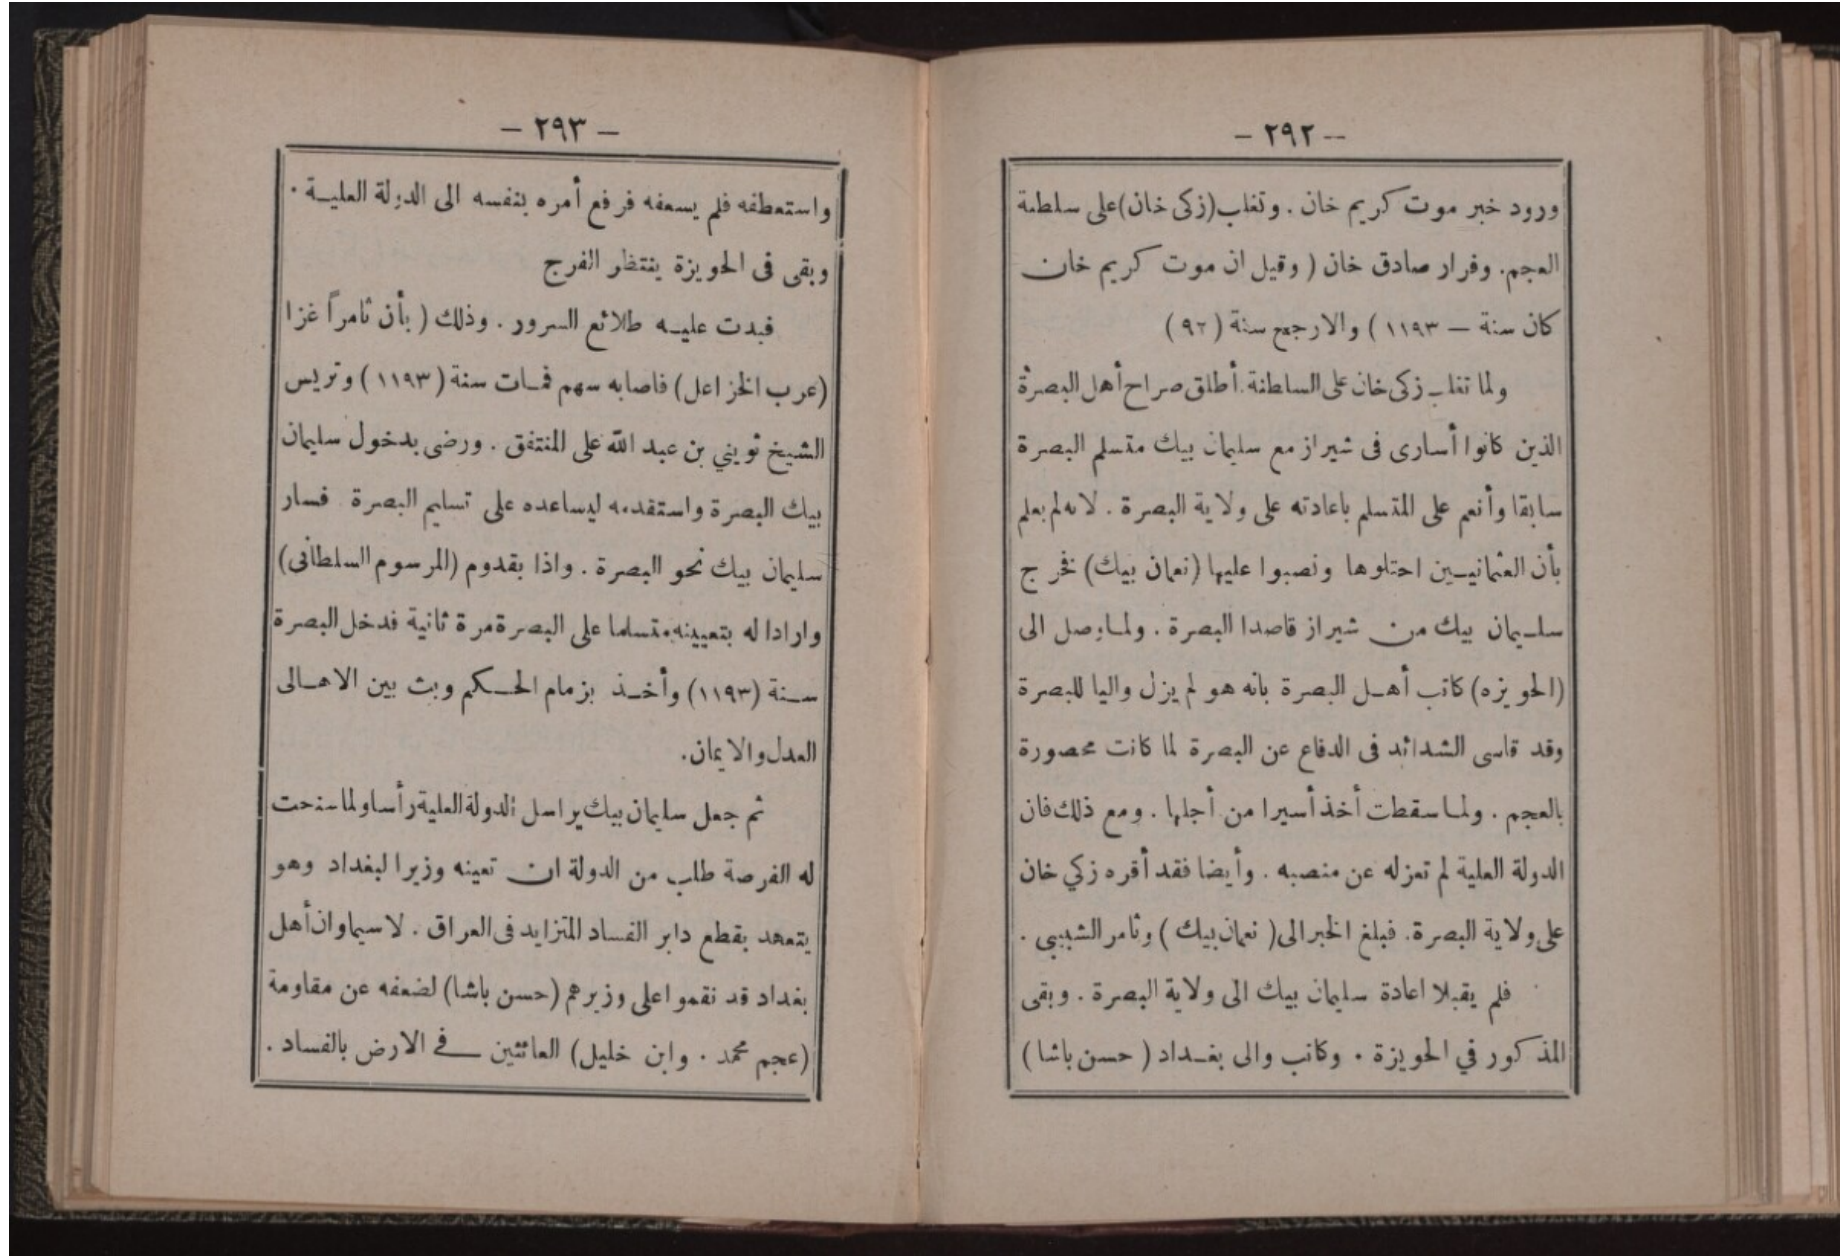 -- ٢٩٢ –
ورود خبر موت كريم خان . وتغلب (زكى خان) على سلطنة
العجم. وفرار صادق خان ( وقيل ان موت كريم خان
كان سنة — ١١٩٣ ) والارجح سنة ( ٩٢ )
ولما تغلب زكى خان على السلطنة. أطلق صراح أهل البصرة
الذين كانوا أسارى فى شيراز مع سليمان بيك متسلم البصرة
سابقا وأنعم على المتسلم باعادته على ولاية البصرة . لانه لم يعلم
بأن العثمانيين احتلوها ونصبوا عليها (نعمان بيك) فخرج
سليمان بيك من شيراز قاصدا البصرة . ولما وصل الى
(الحويزه) كاتب أهل البصرة بانه هو لم يزل واليا للبصرة
وقد قاسى الشدائد فى الدفاع عن البصرة لما كانت محصورة
بالعجم . ولما سقطت أخذ أسيرا من أجلها . ومع ذلك فان
الدولة العلية لم تعزله عن منصبه . وأيضا فقد أقره زكي خان
على ولاية البصرة. فبلغ الخبر الى ( نعمان بيك ) وثامر الشبيبى .
فلم يقبلا اعادة سليمان بيك الى ولاية البصرة . وبقى
المذكور في الحويزة . وكاتب والى بغداد ( حسن باشا )
– ٢٩٣ –
واستعطفه فلم يسعفه فرفع أمره بنفسه الى الدولة العلية .
وبقى فى الحويزة ينتظر الفرج
فبدت عليه طلائع السرور . وذلك ( بأن ثامراً غزا
(عرب الخزاعل) فاصابه سهم فمات سنة ( ١١٩٣ ) وتريس
الشيخ ثويني بن عبد الله على المنتفق . ورضى بدخول سليمان
بيك البصرة واستقدمه ليساعده على تسليم البصرة فسار
سليمان بيك نحو البصرة . واذا بقدوم (المرسوم السلطانى)
وارادا له بتعيينه متسلما على البصرة مرة ثانية فدخل البصرة
سنة (١١٩٣) وأخذ بزمام الحكم وبث بين الاهالى
العدل والايمان.
ثم جعل سليمان بيك يراسل الدولة العلية رأسا ولما سنحت
له الفرصة طلب من الدولة ان تعينه وزيرا لبغداد وهو
يتعهد بقطع دابر الفساد المتزايد فى العراق . لا سيما وان أهل
بغداد قد نقموا على وزيرهم (حسن باشا) لضعفه عن مقاومة
(عجم محمد . وابن خليل) العائثين في الارض بالفساد .